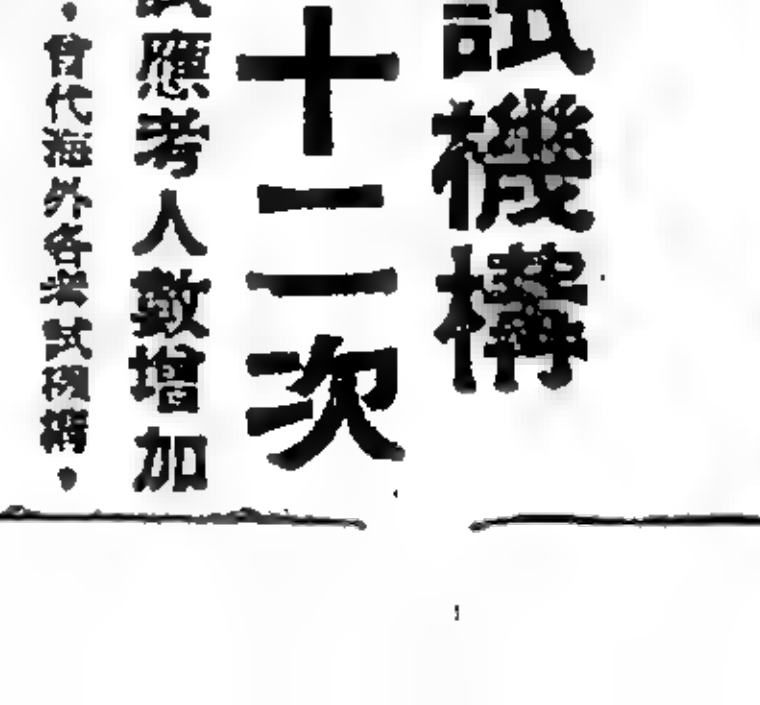 試機構
十二次
試應考人數增加
・曾代海外各考試機構・